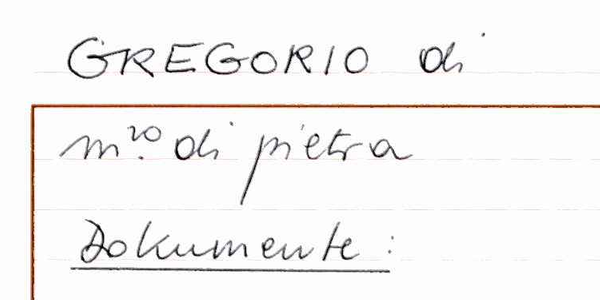 GREGORIO di
m.ro di pietra
Dokumente: